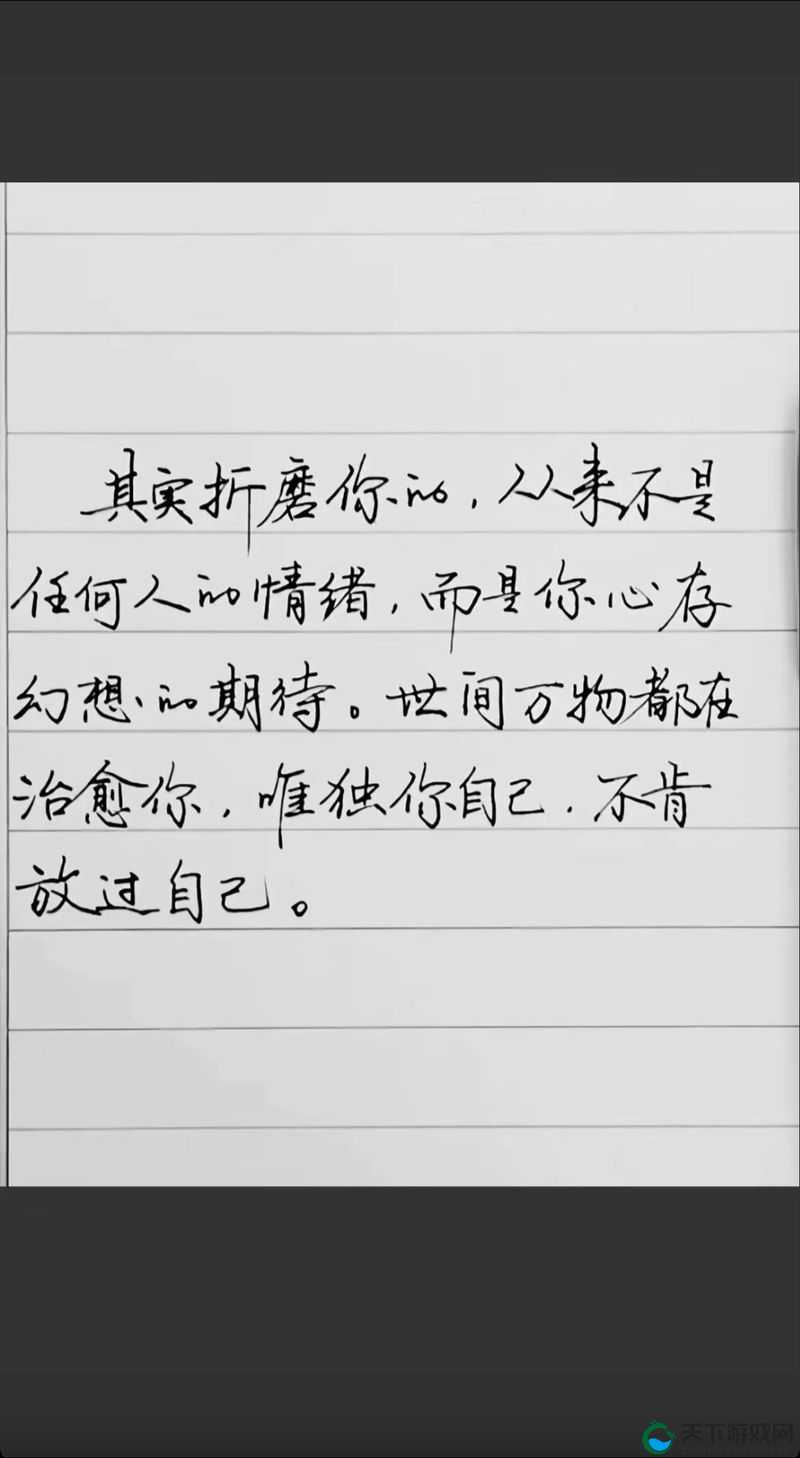 其实折磨你的，从来不是
任何人的情绪，而是你心存
幻想的期待。世间万物都在
治愈你，唯独你自己，不肯
放过自己。
天下游戏网